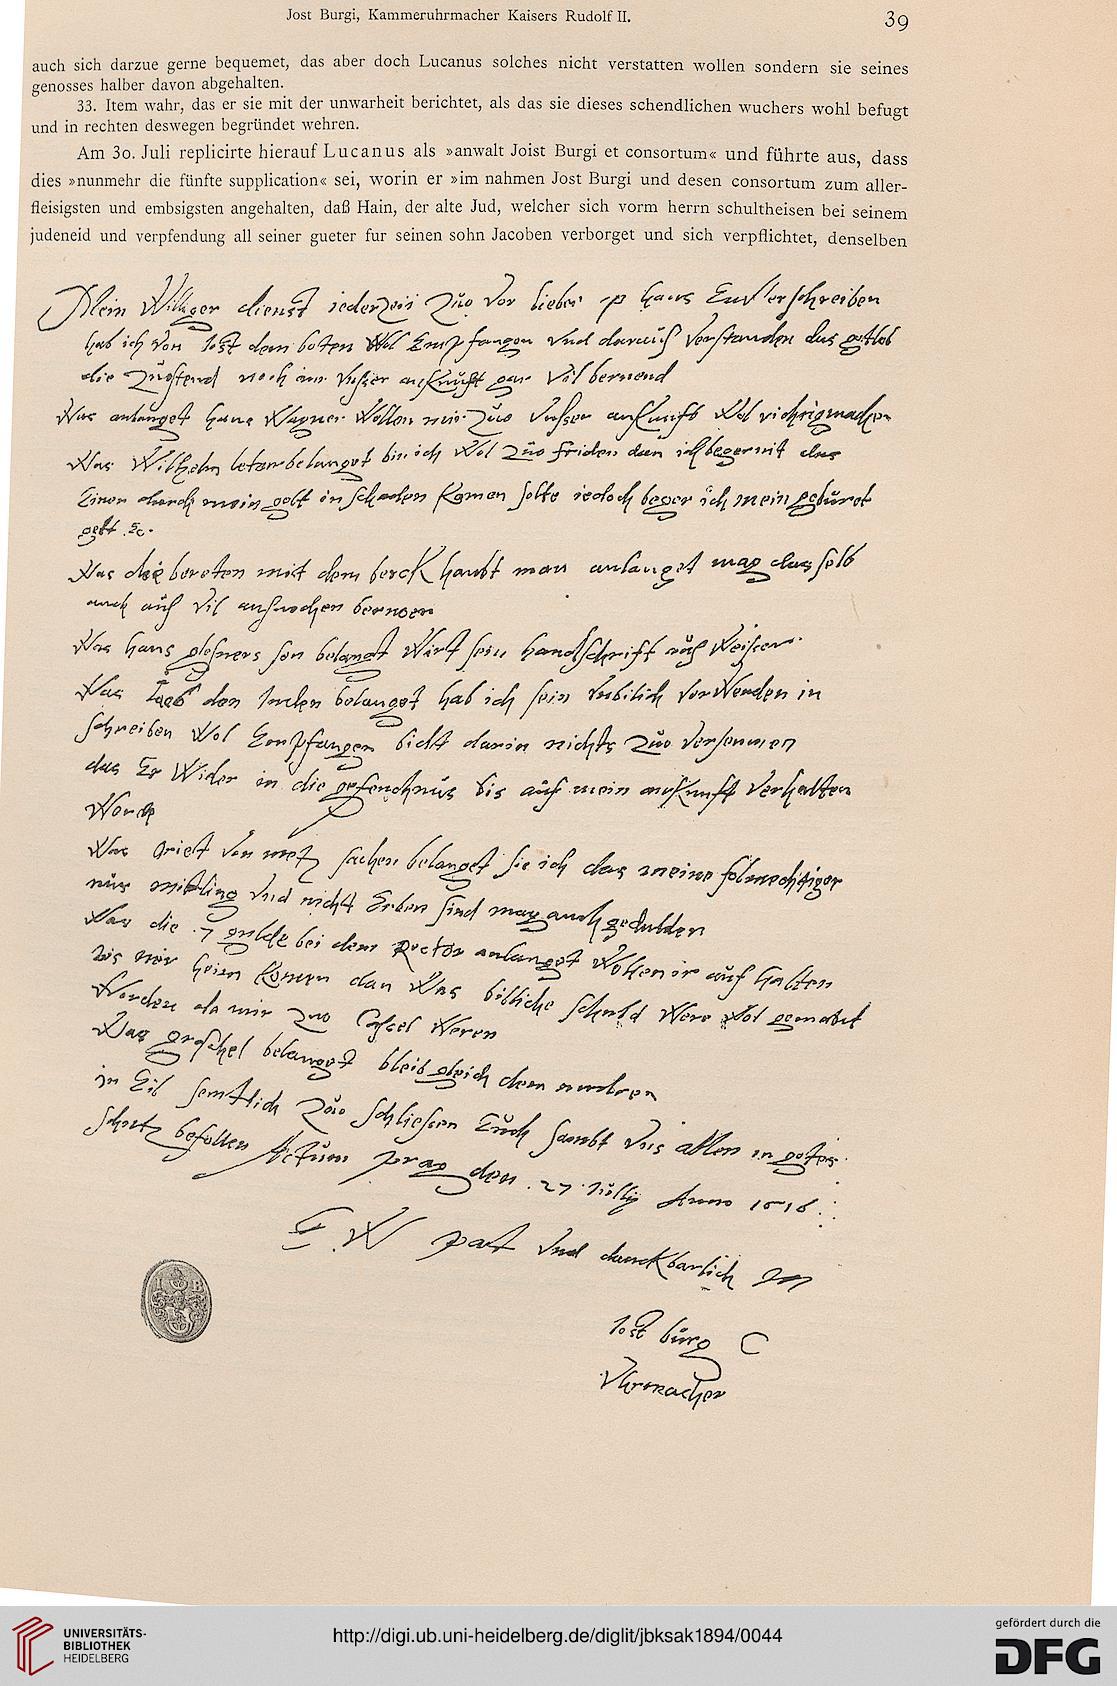 Jost Burgi, Kammeruhrmacher Kaisers Rudolf II. 39
auch sich darzue gerne bequemet, das aber doch Lucanus solches nicht verstatten wollen sondern sie seines
genosses halber davon abgehalten.
33. Item wahr, das er sie mit der unwarheit berichtet, als das sie dieses schendlichen wuchers wohl befugt
und in rechten deswegen begründet wehren.
Am 30. Juli replicirte hierauf Lucanus als »anwalt Joist Burgi et consortum« und führte aus, dass
dies »nunmehr die fünfte supplication« sei, worin er »im nahmen Jost Burgi und desen consortum zum aller-
fleisigsten und embsigsten angehalten, daß Hain, der alte Jud, welcher sich vorm herrn schultheisen bei seinem
judeneid und verpfendung all seiner gueter fur seinen sohn Jacoben verborget und sich verpflichtet, denselben
Mein Williger dienst iederzeit zuo vor lieber hans schreiben
hab ich von Jost dem boten Wol Empfangen vnd darauß verstanden das gotlob
die noch vil
Was anlanget hans Wagner Wollen mir zuo vnser ankunft Wol richtig machen
Was Wilhelm belanget bin ich Wol zuo friden dan ich beger nit das
Einer durch mein gelt in schaden komen solte iedoch beger ich mein gebüret
gelt
Was die bereten mit dem berck haubt man anlanget mag das selb
auch auf vil
Was hans glesners son belangt Wirt sein handschrift auß Weisen
Was den Juden belanget hab ich sein in
schreiben Wol Empfangen bidt darin nichts zuo versoumen
das Er Wider in die gefencknus bis auf mein ankunft verhalten
Werde
Was von metz sachen belanget sie ich das meine
nur mitling vnd nicht Erben sind mag auch gedulden
Was die 7 gulde bei dem Rector anlanget Wollen ir auf halten
bis mir heim komen dan Was schuld Were Wol gemabnt
Worden da mir zuo Cassel Weren
Was belanget bleib gleich dem andren
in Eil semtlich zuo schliessen Euch sambt vns allen in gotes
schutz befollen Actum prag den 27 Anno 1616
E W pat vnd danckbarlich
Jost bürg C
Vhrmacher
I B
UNIVERSITÄTS-
BIBLIOTHEK
HEIDELBERG
http://digi.ub.uni-heidelberg.de/diglit/jbksak1894/0044
gefördert durch die
DFG